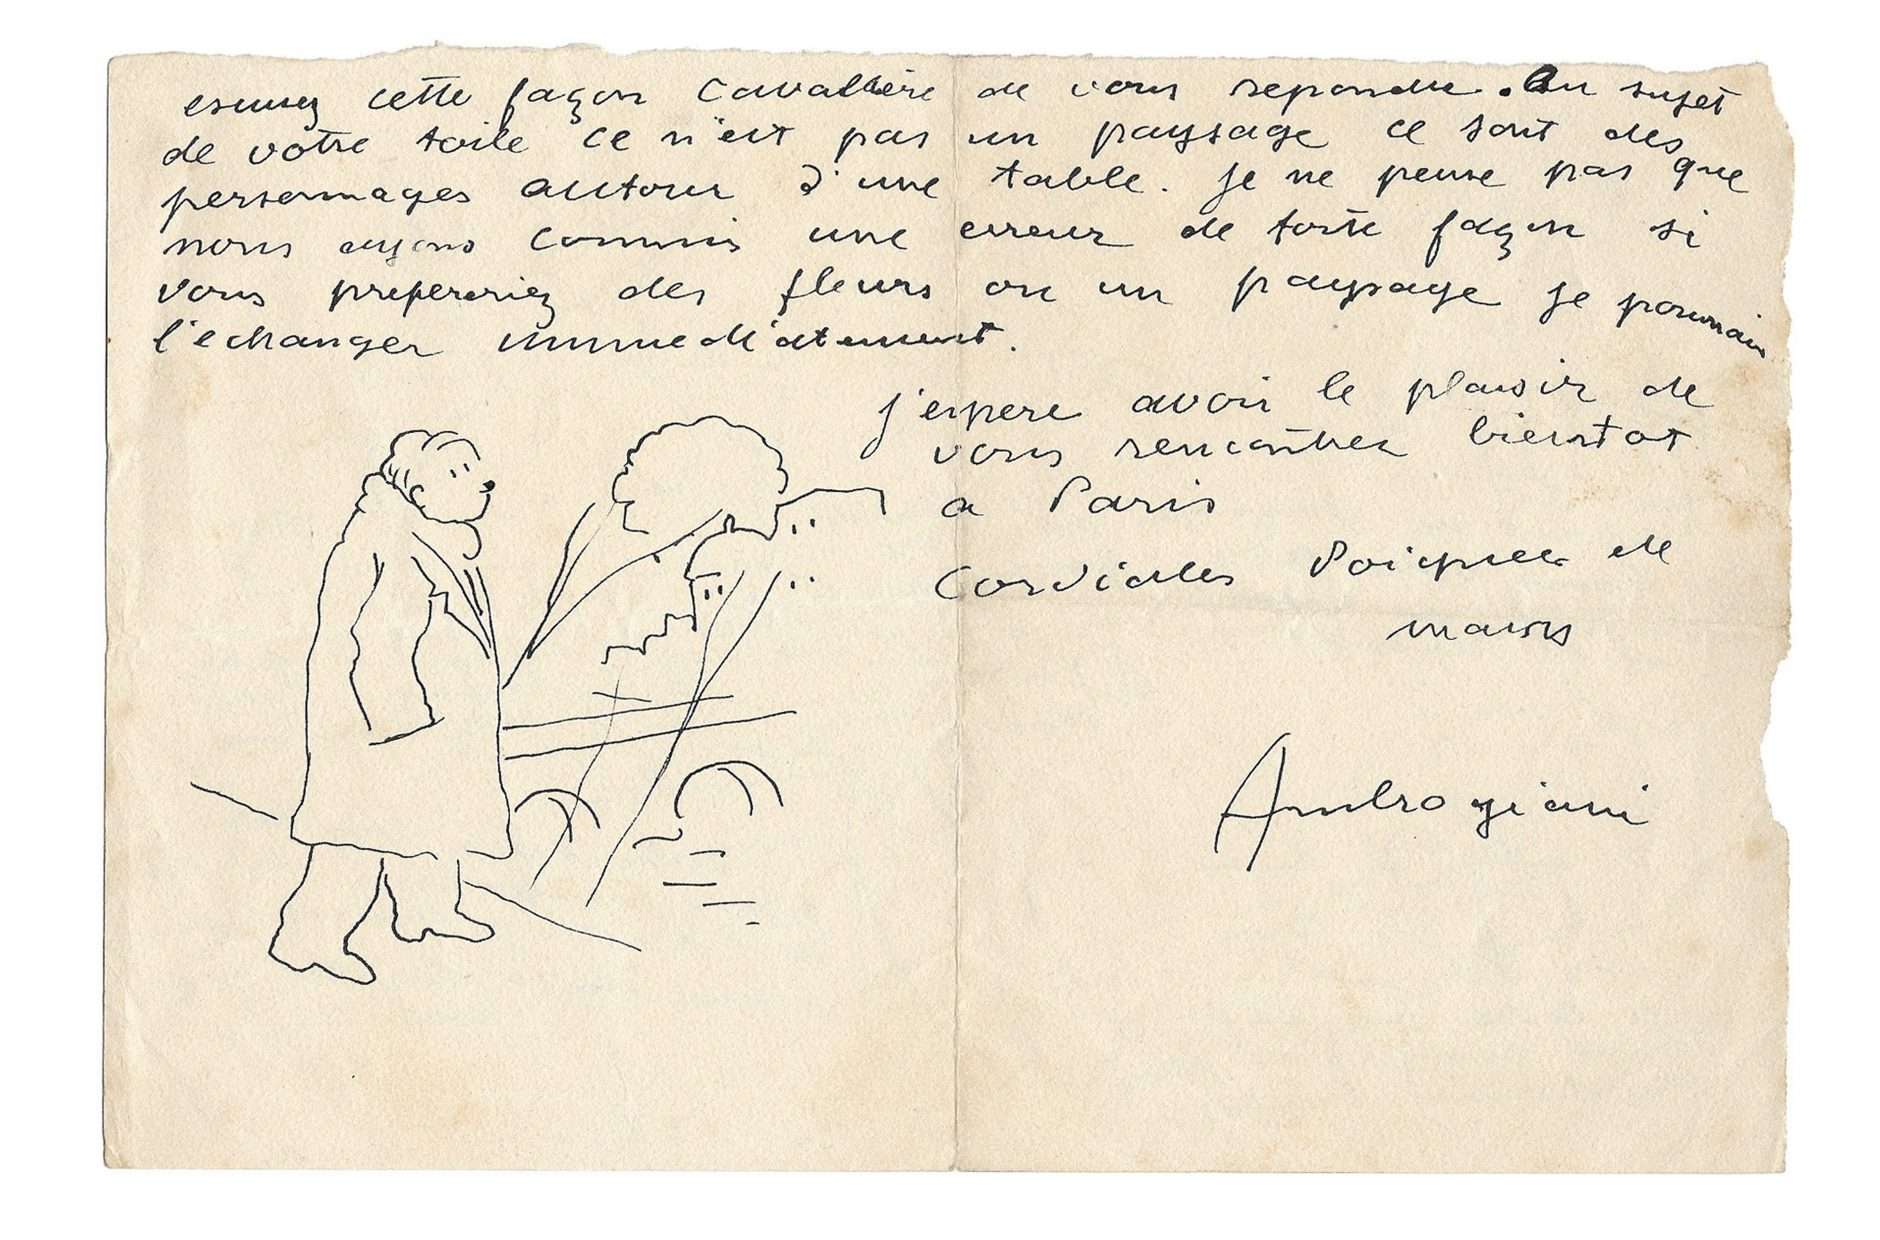 escusez cette façon cavallière de vous repondre. Au sujet
de votre toile ce n'est pas un paysage ce sont des
personnages autour d'une table. je ne pense pas que
nous ayons commis une erreur de toute façon si
vous prefereriez des fleurs ou un paysage je pourrais
l'echanger immediatement.
j'espere avoir le plaisir de
vous rencontrer bientot
a Paris
Cordiales Poignees de
mains
Ambrogiani